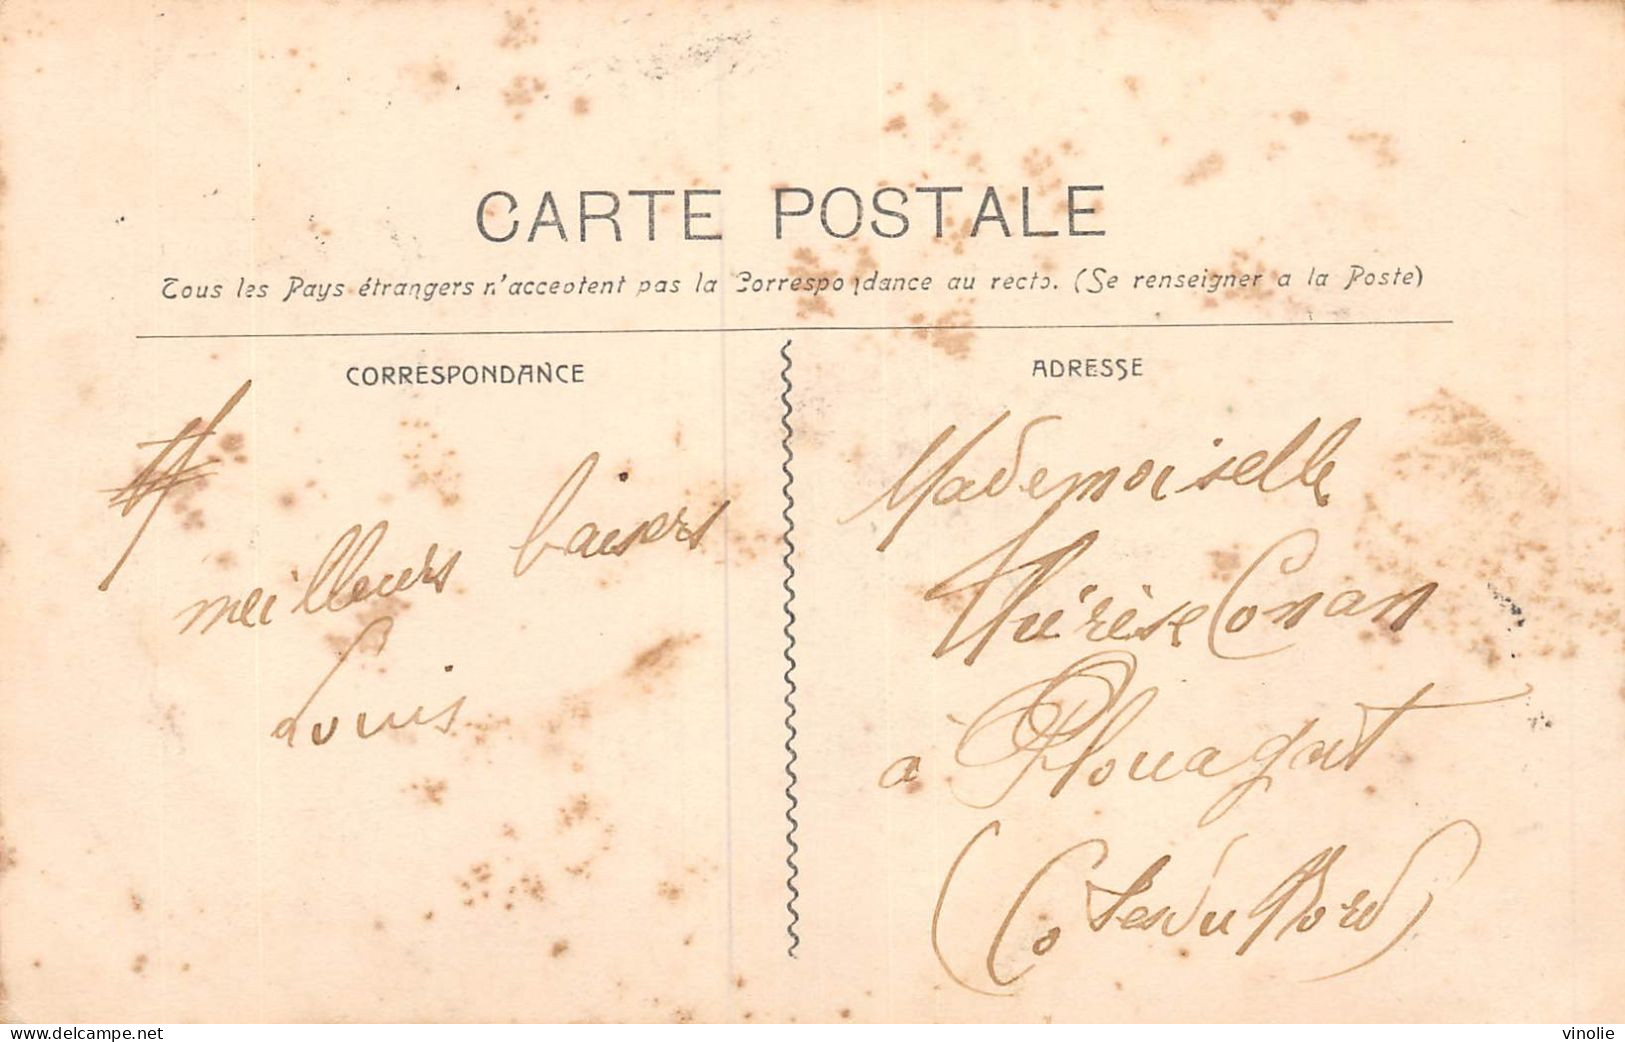 CARTE POSTALE
Tous les Pays étrangers n'acceptent pas la Correspondance au recto. (Se renseigner a la Poste)
CORRESPONDANCE
meilleurs baisers
Louis
ADRESSE
Mademoiselle
Thérèse Conan
à Plouagat
(Cotes du Nord)
delcampe.net
vinolie